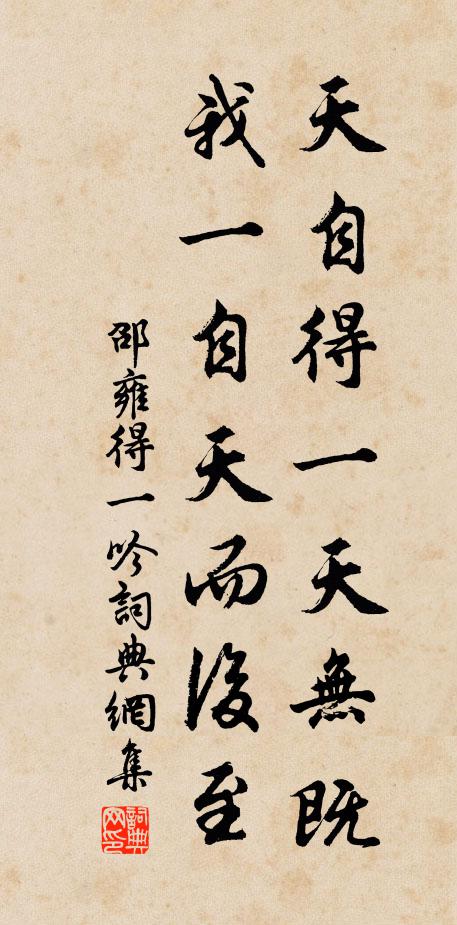 天自得一天無既
我一自天而後至
邵雍得一吟詞典網集
詞典網印